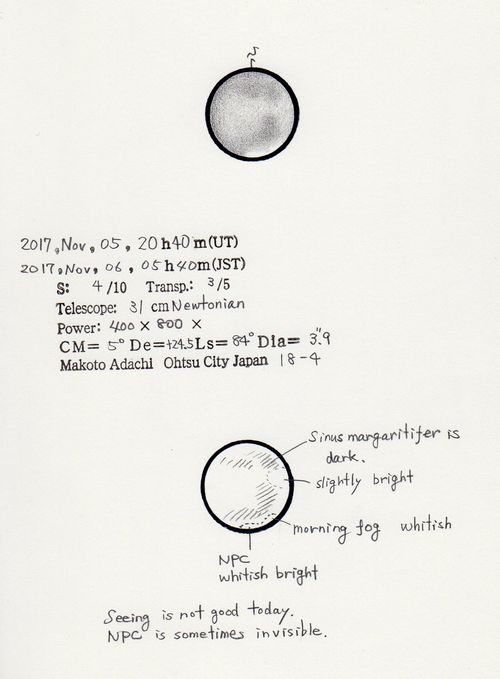 S
2017, Nov, 05, 20h40m(UT)
2017, Nov, 06, 05h40m(JST)
S: 4/10 Transp.: 3/5
Telescope: 31 cm Newtonian
Power: 400 × 800 ×
CM= 5° De=+24.5 Ls= 84° Dia= 3.″9
Makoto Adachi Ohtsu City Japan 18-4
Sinus margaritifer is
dark.
slightly bright
morning fog whitish
NPC
whitish bright
Seeing is not good today.
NPC is sometimes invisible.